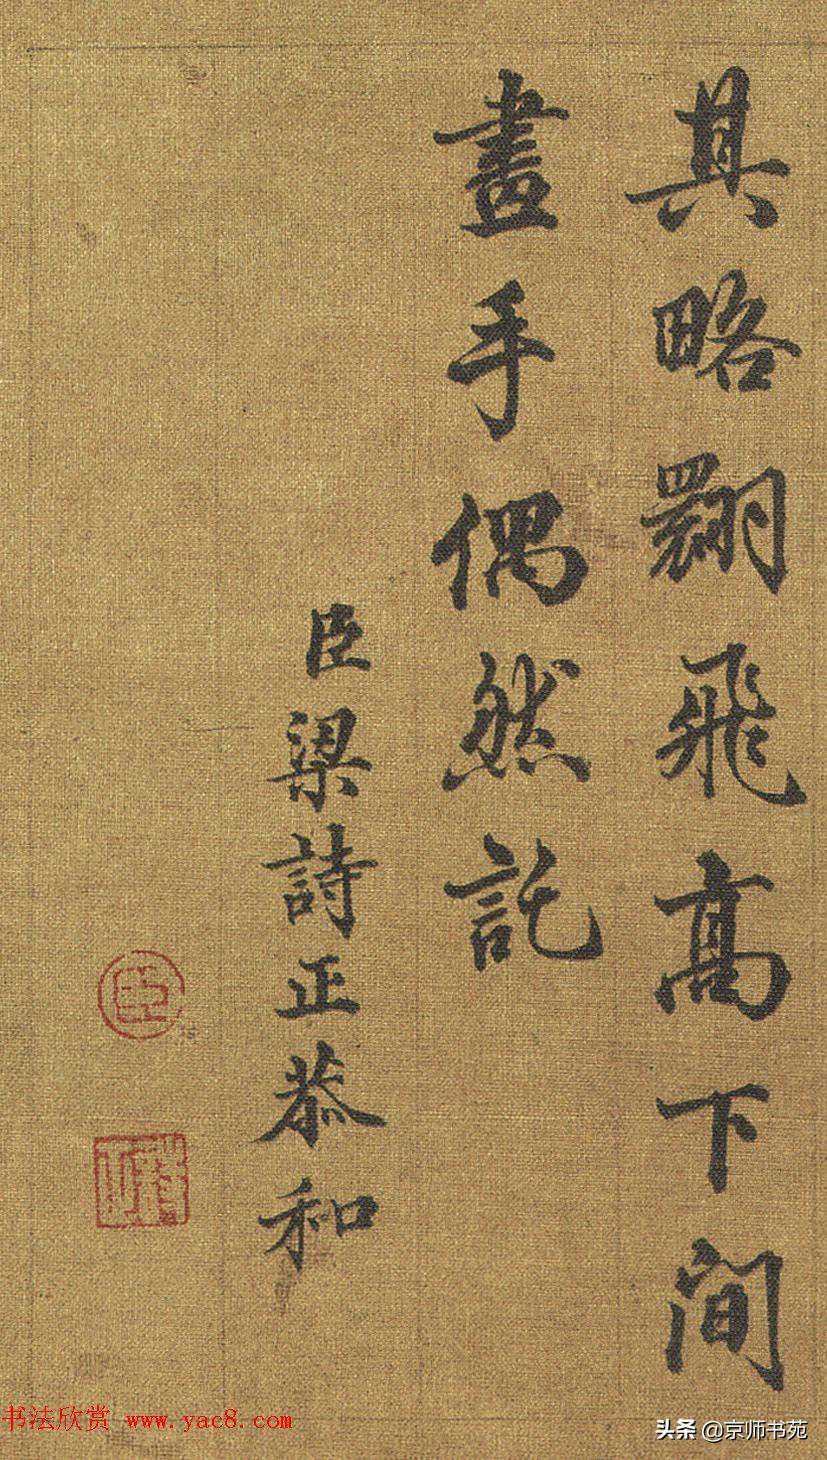 其略翾飛高下間
畫手偶然託
臣梁詩正恭和
臣
书法欣赏 www.yac8.com
头条 @京师书苑